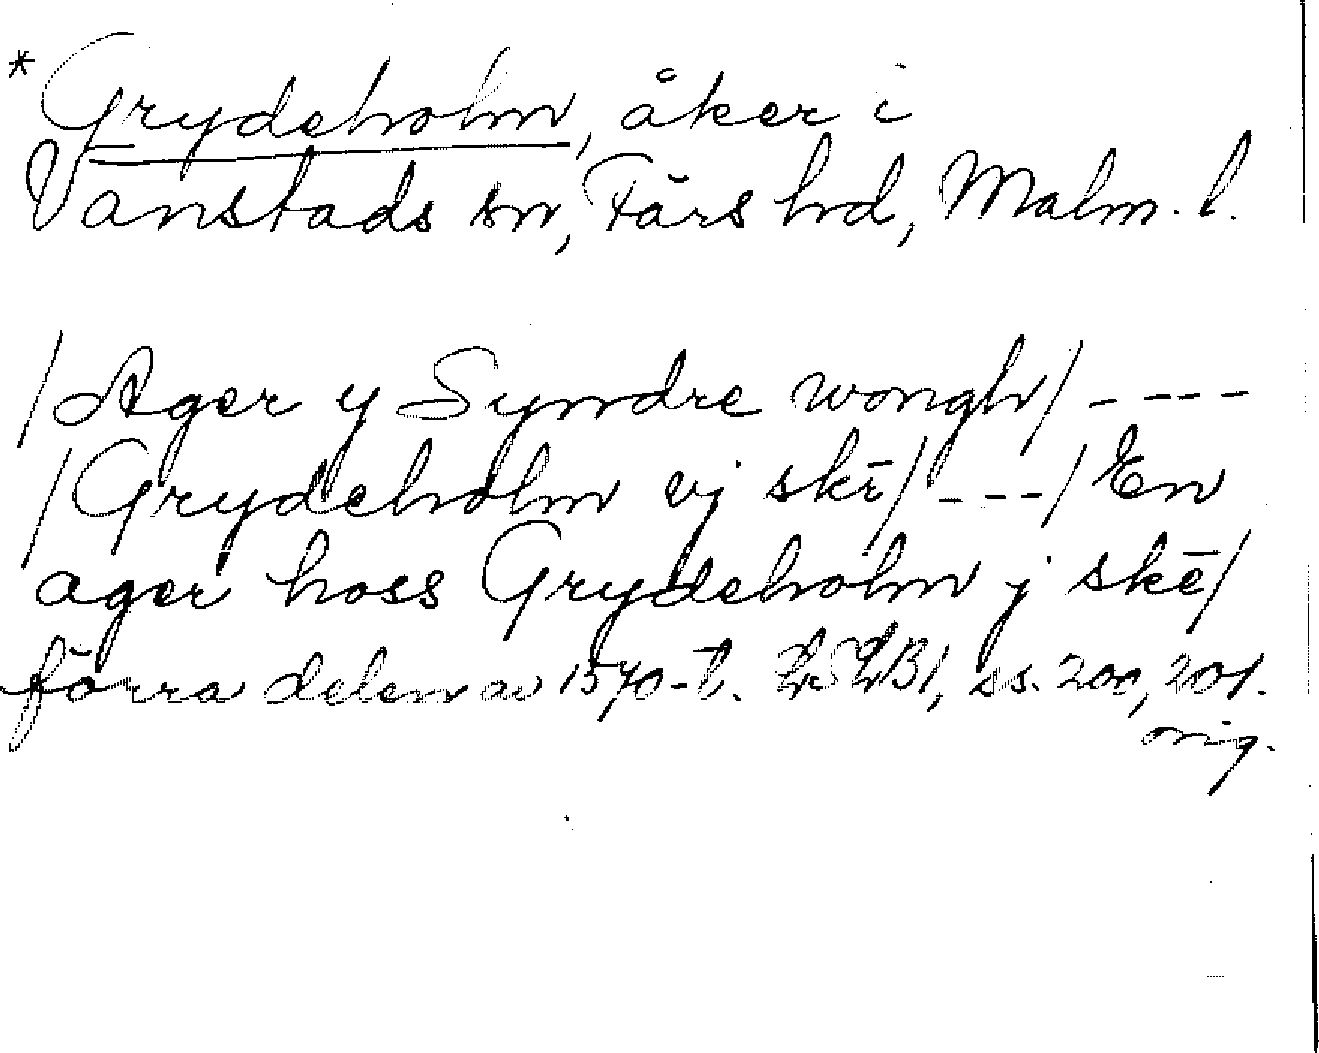 * Grydeholm, åker i
Vanstads sn, Färs hd, Malm. l.
/Ager y Syndre wongh/ ----
/Grydeholm vj skē/ ---/ En
ager hoss Grydeholm j skē/
förra delen av 1570-t. ss. 200, 201.
orig.